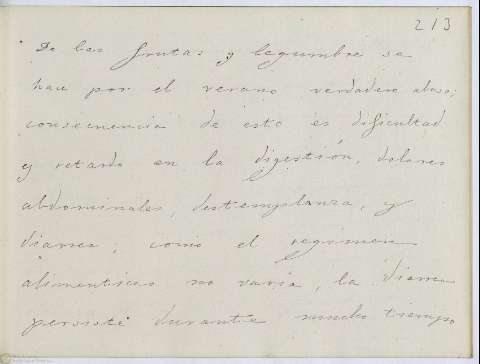 213
De las frutas y legumbre se
hace por el verano verdadero abuso;
consecuencia de esto es dificultad
y retardo en la digestión, dolores
abdominales, destemplanza, y
diarrea; como el regimen
alimenticio no varia, la diarrea
persiste durante mucho tiempo